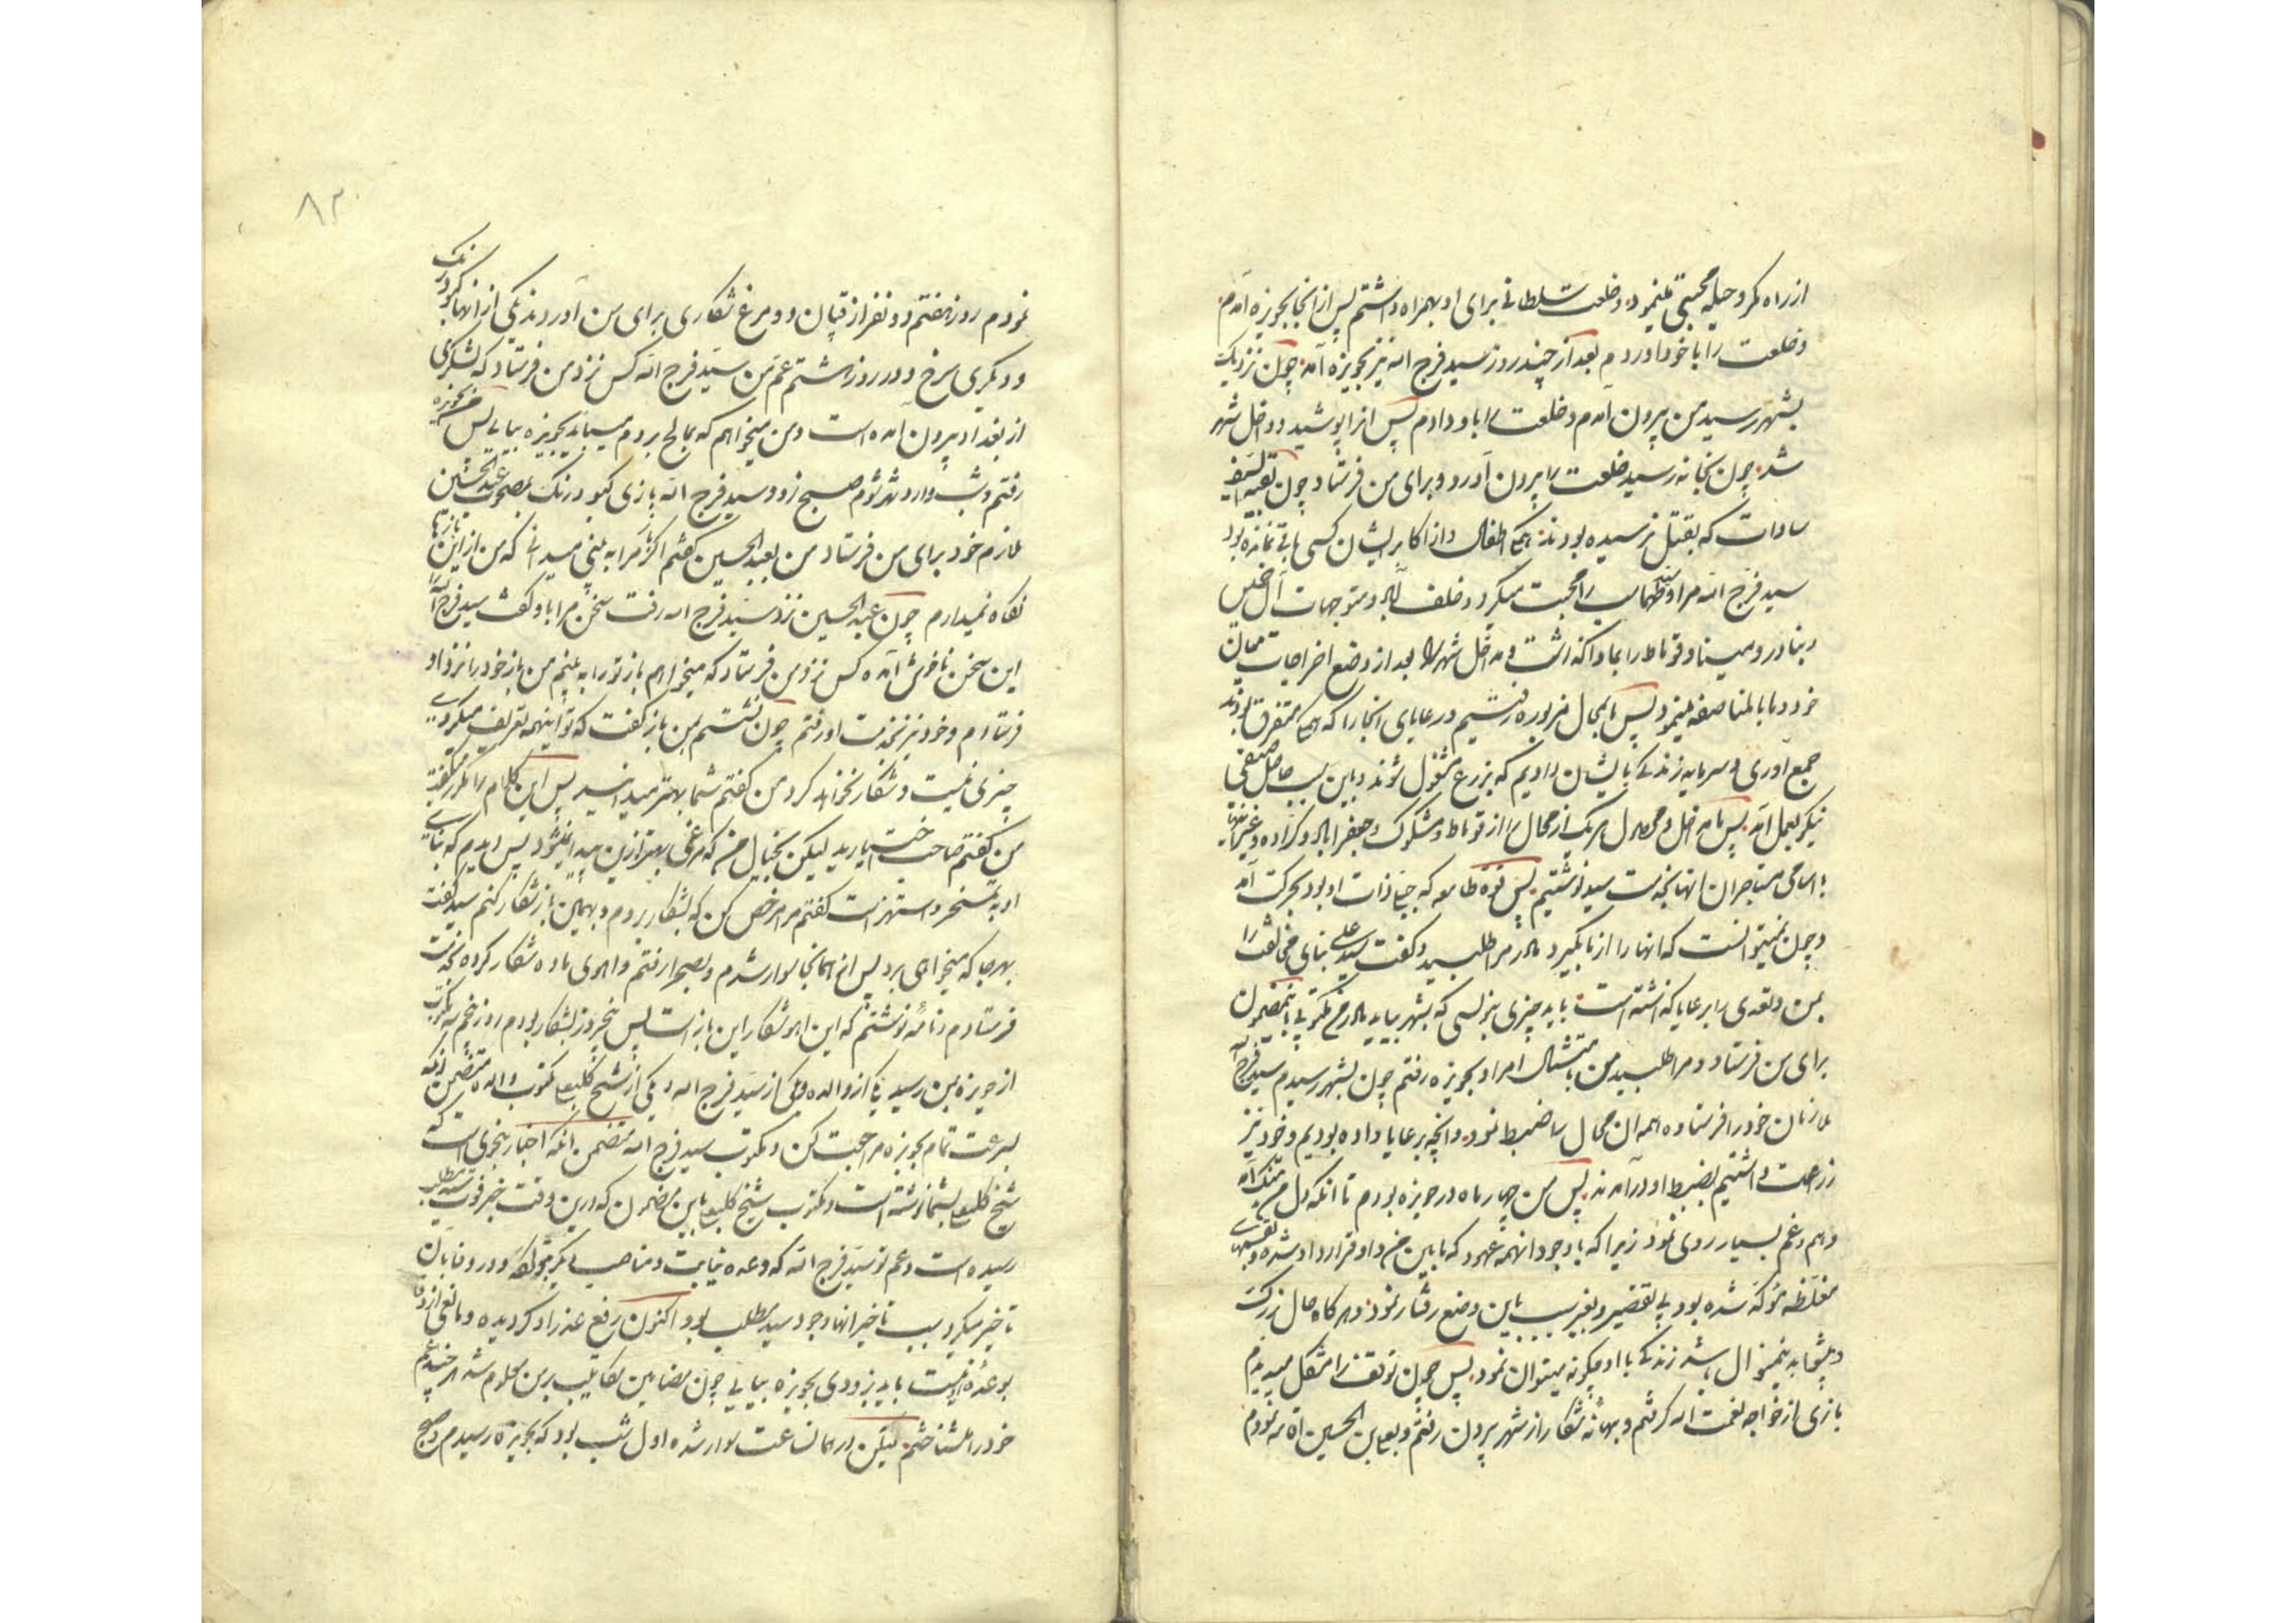 از راه مکر و حیله محبتی مینمود و خلعت سلطانی برای او بهمراه داشتم پس از انجا بحویزه آمدم
و خلعت را با خود آوردم بعد از چند روز سید فرج الله نیز بحویزه آمد چون نزدیک
بشهر رسید من بیرون آمدم و خلعت را باو دادم پس انرا پوشید و داخل شهر
شد چون بخانه رسید خلعت را بیرون آورد و برای من فرستاد چون بقیة السیف
سادات که بقتل نرسیده بودند همه اطفال و از اکابر ایشان کسی باقی نمانده بود
سید فرج الله مرا و سید طهماسب را محبت میکرد و خلف آباد و متوجهات آل خمیس
و بنادر و میناو و قوناط را بما وا گذاشت و مداخل شهر را بعد از وضع اخراجات میان
خود و ما بالمناصفه مینمود پس بمحال مزبوره رفتیم و رعایای انجا را که همه متفرق بودند
جمع آوری و سرمایه زندگی بایشان دادیم که بزرع مشغول شوند و باین سبب حاصل
نیکو بعمل آمد پس مداخل و محصول هریک از محال را از قوناط و مشکوک و جعفر آباد و کراده و غیر انها
با اسامی مستاجران انها بخدمت سید نوشتیم پس قوه طامعه که جبلی ذات او بود بحرکت آمد
و چون نمیتوانست که انها را از ما بگیرد مادر مرا طلبید و گفت سید علی بنای مخالفت را
بمن و تعدی را برعایا گذاشته است باید چیزی بنویسی که بشهر بیاید مادرم مکتوبی باینمضمون
برای من فرستاد و مرا طلبید من بامتثال امر او بحویزه رفتم چون بشهر رسیدم سید فرج الله
ملازمان خود را فرستاده همه ان محال را ضبط نمود و انچه برعایا داده بودیم و خود نیز
زراعت داشتیم بضبط او درآمدند پس من چهار ماه در حویزه بودم تا انکه دل من تنک آمد
و هم و غم بسیار روی نمود زیرا که با وجود انهمه عهود که ما بین من و او قرارداد شده و بقسمهای
مغلظه موکد شده بود بی تقصیر و بغیر سبب باین وضع رفتار نمود و هرگاه حال بزرک
و پیشوا بدینمنوال باشد زندگی با او چگونه میتوان نمود پس چون توقف را مشکل میدیدم
بازی از خواجه نعمت الله گرفتم و بهانه شکار از شهر بیرون رفتم و بعباس الحسین اقامه نمودم
۸۳
نمودم روز هفتم دو نفر از قپان دو مرغ شکاری برای من آوردند یکی از انها کبود رنک
و دیگری سرخ و در روز هشتم عم من سید فرج الله کس نزد من فرستاد که لشکری
از بغداد بیرون آمده است و من میخواهم که بمالح بروم میباید بحویزه بیایی پس من بحویزه
رفتم و شب وارد شهر شدم صبح زود سید فرج الله بازی کبود رنک بمصحوب عبدالحسین
ملازم خود برای من فرستاد من بعبدالحسین گفتم اگر باز مرا به بینی میدانی که من از این بازها
نگاه نمیدارم چون عبدالحسین نزد سید فرج الله رفت سخن مرا باو گفت سید فرج الله را
این سخن ناخوش آمده کس نزد من فرستاد که میخواهم باز تو را به بینم من باز خود را نزد او
فرستادم و خود نیز بخدمت او رفتم چون نشستم بمن باز گفت که تو اینهمه تعریف میکردی
چیزی نیست و شکار نخواهد کرد من گفتم شما بهتر میدانید پس این کلام را مکرر میگفت
من گفتم صاحب اختیارید لیکن بخیال من که مرغی بهتر از این پیدا نمیشود پس دیدم که بنای
او به تمسخر و استهزاست گفتم مرا مرخص کن که بشکار بروم و بهمین باز شکار کنم سید گفت
بهرجا که میخواهی برو پس از همانجا سوار شدم و بصحرا رفتم و اهوی ماده شکار کرده بخدمت
فرستادم و نامه نوشتم که این اهو شکار این باز است پس پنجروز بشکار بودم روز پنجم سه مکتوب
از حویزه بمن رسید یکی از والده و یکی از سید فرج الله و یکی از شیخ کلبعلی مکتوب والده متضمن انکه
بسرعت تمام بحویزه مراجعت کن و مکتوب سید فرج الله متضمن انکه اخبار بنحوی است که
شیخ کلبعلی بشما نوشته است و مکتوب شیخ کلبعلی باین مضمون که درین وقت خبر فوت سید مطلب
رسیده است و عم تو سید فرج الله که وعده نیابت و مناصب دیگر بتو و در وفا بان
تاخیر میکرد سبب تاخیر انها وجود سید مطلب بود اکنون رفع عذر او گردیده و مانعی از وفا
بوعده نیست باید بزودی بحویزه بیایی چون مضامین مکاتیب بر من معلوم شد هر چند عم
خود را میشناختم لیکن در همان ساعت سوار شده اول شب بود که بحویزه رسیدم و صبح